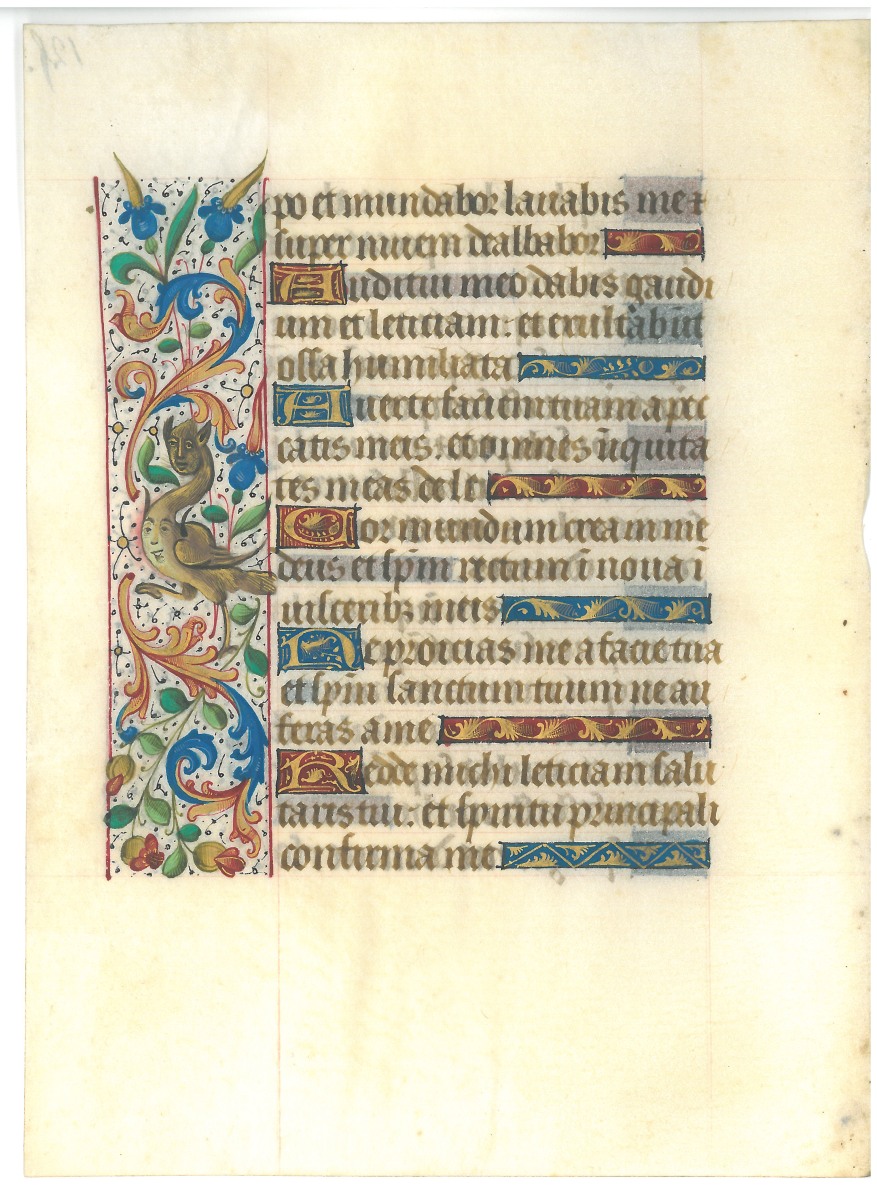 po et mundabor lauabis me ⁊
super niuem dealbabor
Auditui meo dabis gaudi
um et leticiam: et exultabūt
ossa humiliata
Auerte faciem tuam a pec
catis meis: et omnes īiquita
tes meas dele
Cor mundum crea in me
deus et sp̄m rectum īnoua ī
uisceribꝫ meis
Ne proicias me a facie tua
et sp̄m sanctum tuum ne au
feras a me
Redde michi leticiam salu
taris tui: et spiritu principali
confirma me